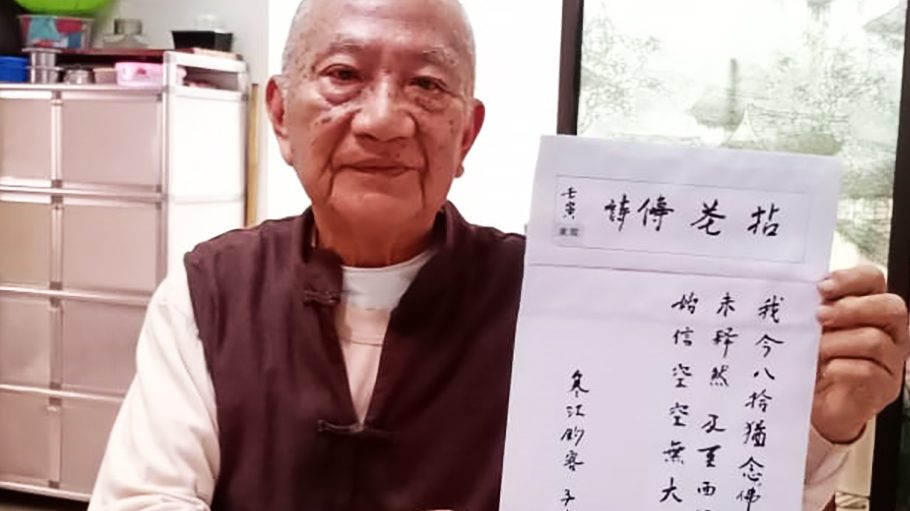 拈花傳詩
壬寅
我今八拾猶念佛
未釋然 及至西
始信空空無大
寒江釣客